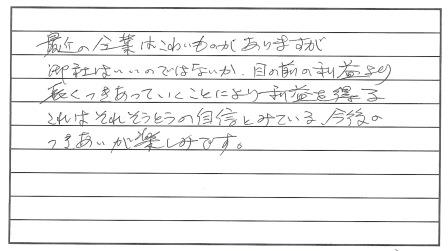 最近の企業はこわいものがありますが
御社はいいのではないか、目の前の利益より
長くつきあっていくことにより利益を得る
これはそれそうとうの自信とみている、今後の
つきあいが楽しみです。